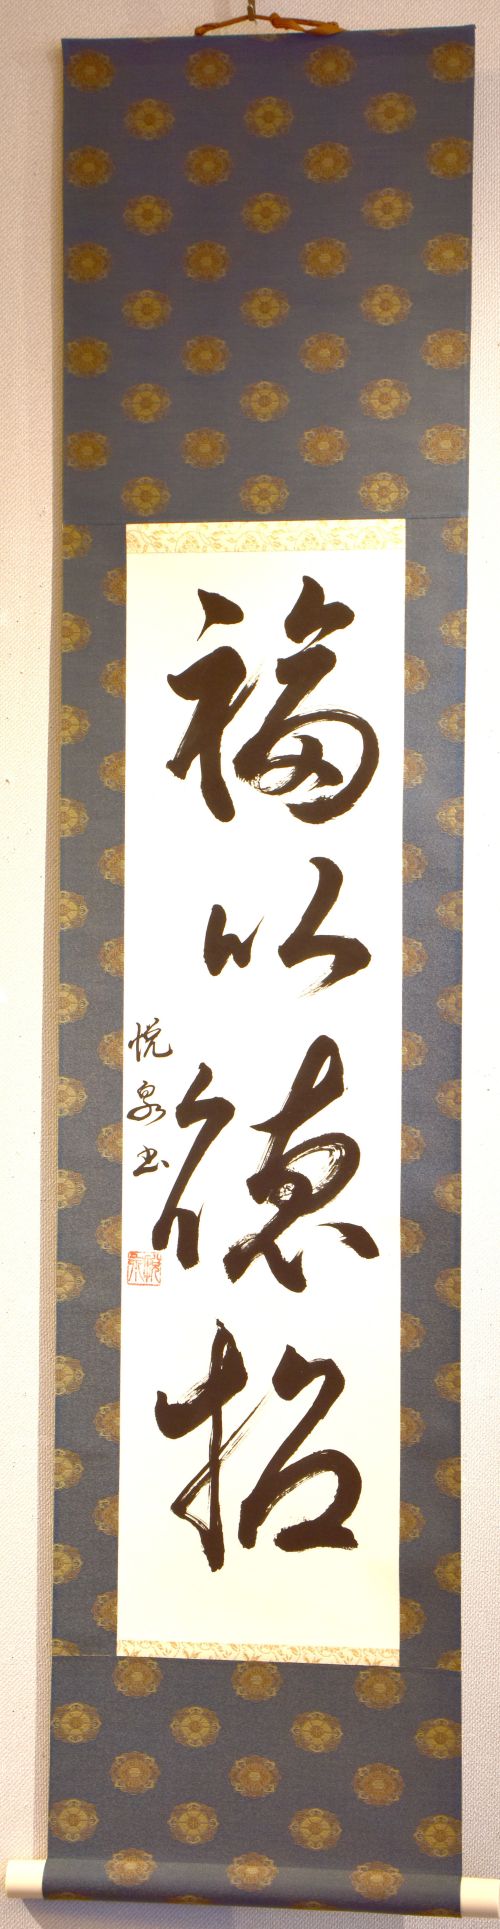 福以徳招
悦泉書